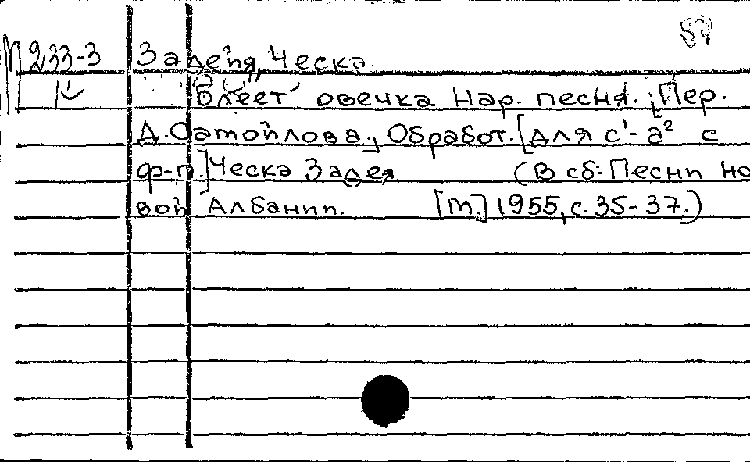 57
233-3 Задея, Ческа
Блеет овечка Нар. песня. [Пер.
Д. Самойлова. Обработ. [для с¹-а² с
ф-п.] Ческа Задея (В сб: Песни но
вой Албании. [М.] 1955, с. 35-37.)